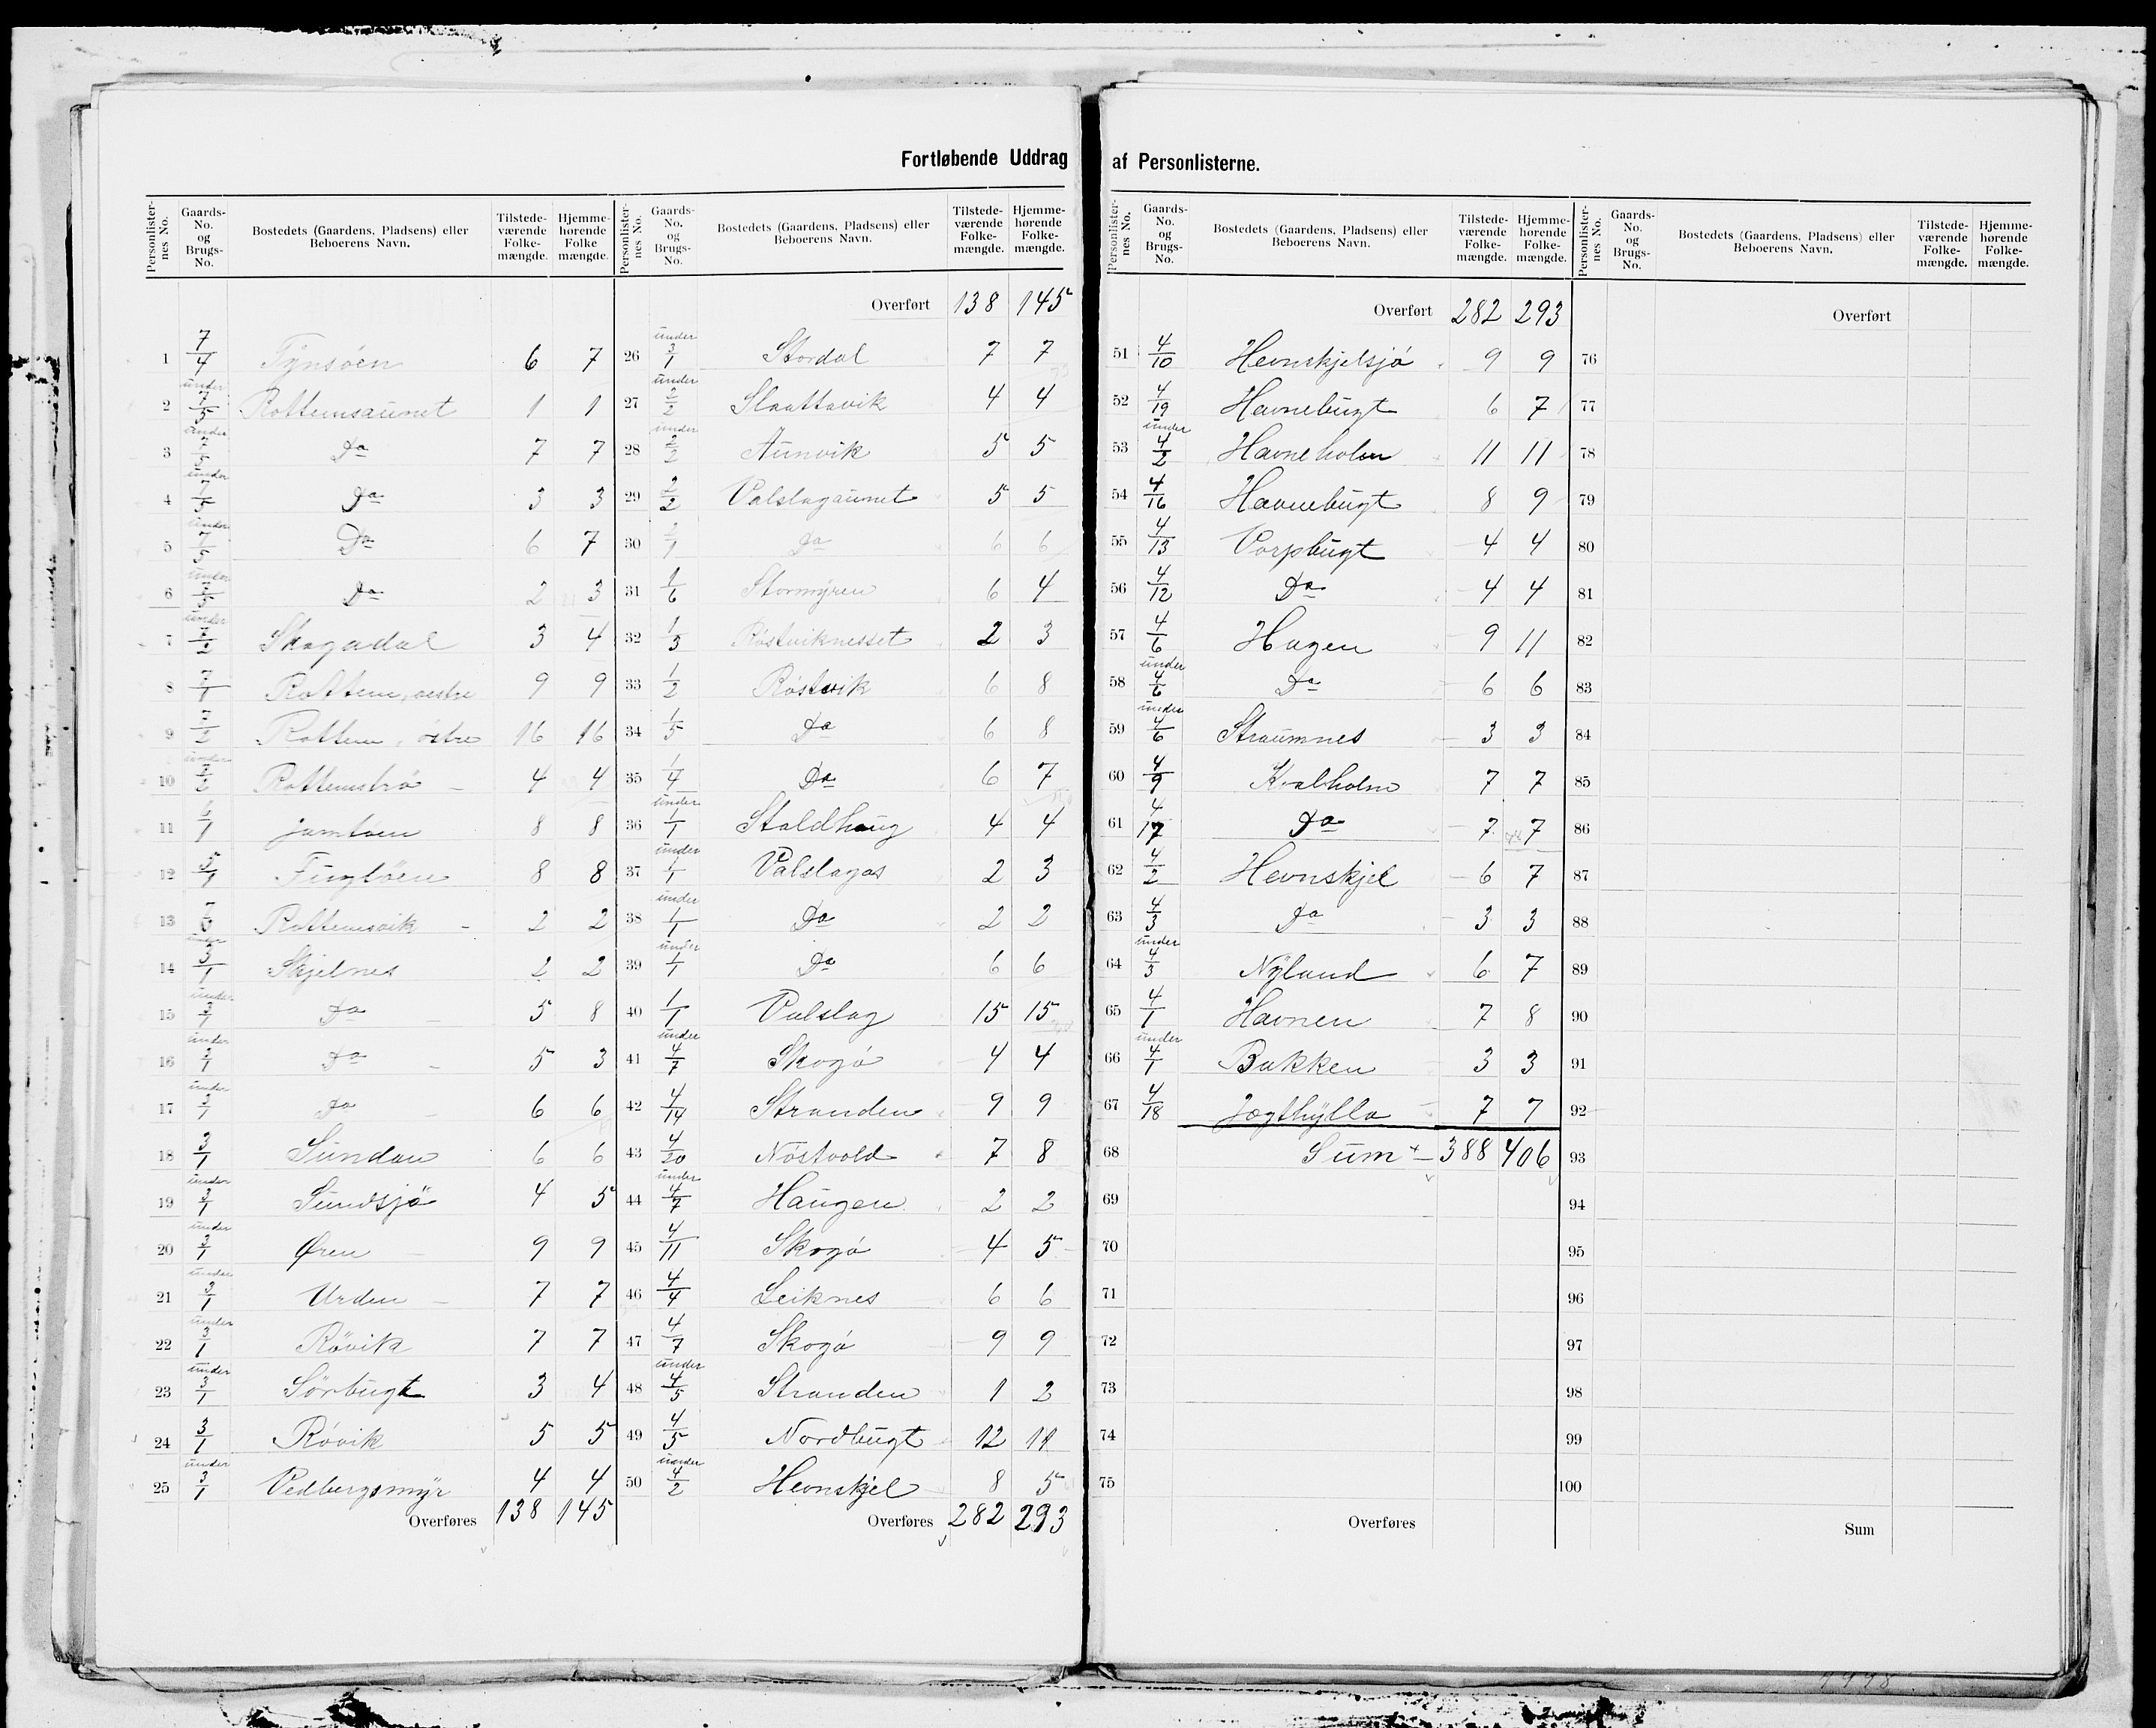 Fortløbende Uddrag af Personlisterne.
Personlisternes No. Gaards-No. og Brugs-No. Bostedets (Gaardens, Pladsens) eller Beboerens Navn. Tilstedeværende Folkemængde. Hjemmehørende Folkemængde.
1 7/4 Tynsöen 6 7
2 under 7/5 Rottemsaunet 1 1
3 under 7/5 Do 7 7
4 under 7/5 Do 3 3
5 under 7/5 Do 6 7
6 under 7/5 Do 2 3
7 under 7/2 Skogadal 3 4
8 7/1 Rottem, vestre 9 9
9 7/2 Rottem, östre 16 16
10 under 7/2 Rottemsbrö 4 4
11 6/1 Jamtöen 8 8
12 5/1 Fuglöen 8 8
13 7/6 Rottemsvik 2 2
14 under 3/1 Skjelnes 2 2
15 under 3/1 Do 5 8
16 under 3/1 Do 5 3
17 under 3/1 Do 6 6
18 3/1 Sundan 6 6
19 under 3/1 Sundsjö 4 5
20 under 3/1 Øren 9 9
21 under 3/1 Urden 7 7
22 under 3/1 Rövik 7 7
23 under 3/1 Sörbugt 3 4
24 3/1 Rövik 5 5
25 under 3/1 Vedbergsmyr 4 4
Overføres 138 145
Personlisternes No. Gaards-No. og Brugs-No. Bostedets (Gaardens, Pladsens) eller Beboerens Navn. Tilstedeværende Folkemængde. Hjemmehørende Folkemængde.
Overført 138 145
26 under 3/1 Stordal 7 7
27 under 2/2 Slaattavik 4 4
28 under 2/2 Aunvik 5 5
29 2/2 Valslagaunet 5 5
30 2/1 Do 6 6
31 1/6 Stormyren 6 4
32 1/3 Röstviknesset 2 3
33 1/2 Röstvik 6 8
34 1/5 Do 6 8
35 1/4 Do 6 7
36 under 1/1 Staldhaug 4 4
37 under 1/1 Valslagos 2 3
38 under 1/1 Do 2 2
39 under 1/1 Do 6 6
40 1/1 Valslag 15 15
41 under 4/7 Skogö 4 4
42 4/14 Stranden 9 9
43 4/20 Nöstvold 7 8
44 under 4/7 Haugen 2 2
45 4/11 Skogö 4 5
46 4/4 Leiknes 6 6
47 4/7 Skogö 9 9
48 under 4/5 Stranden 1 2
49 4/5 Nordbugt 12 11
50 under 4/2 Hevnskjel 8 5
Overføres 282 293
Personlisternes No. Gaards-No. og Brugs-No. Bostedets (Gaardens, Pladsens) eller Beboerens Navn. Tilstedeværende Folkemængde. Hjemmehørende Folkemængde.
Overført 282 293
51 4/10 Hevnskjelsjö 9 9
52 4/19 Havnebugt 6 7
53 under 4/2 Havneholm 11 11
54 4/16 Havnebugt 8 9
55 4/13 Vorpbugt 4 4
56 4/12 Do 4 4
57 4/6 Hagen 9 11
58 under 4/6 Do 6 6
59 under 4/6 Straumnes 3 3
60 4/9 Kvalholm 7 7
61 4/17 Do 7 7
62 4/2 Hevnskjel 6 7
63 4/3 Do 3 3
64 under 4/3 Nyland 6 7
65 4/1 Havnen 7 8
66 under 4/1 Bakken 3 3
67 4/18 Jægthylla 7 7
68 Sum 388 406
69
70
71
72
73
74
75
Overføres
Personlisternes No. Gaards-No. og Brugs-No. Bostedets (Gaardens, Pladsens) eller Beboerens Navn. Tilstedeværende Folkemængde. Hjemmehørende Folkemængde.
Overført
76
77
78
79
80
81
82
83
84
85
86
87
88
89
90
91
92
93
94
95
96
97
98
99
100
Sum